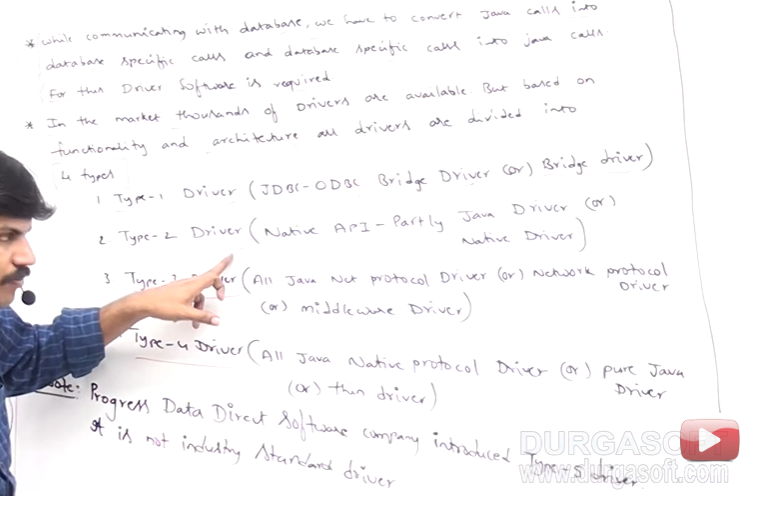 * While communicating with database, we have to convert Java calls into
database specific calls and database specific calls into java calls.
For this Driver Software is required
* In the market thousands of Drivers are available But based on
functionality and architecture all drivers are divided into
4 types
1 Type-1 Driver (JDBC-ODBC Bridge Driver (or) Bridge driver)
2 Type-2 Driver (Native API-Partly Java Driver (or)
Native Driver)
3 Type-3 Driver (All Java Net protocol Driver (or) Network protocol
Driver
(or) middleware Driver)
Type-4 Driver (All Java Native protocol Driver (or) pure Java
Driver
(or) thin driver)
Note: Progress Data Direct Software company introduced Type-5 driver.
It is not industry Standard driver
DURGASOFT
www.durgasoft.com